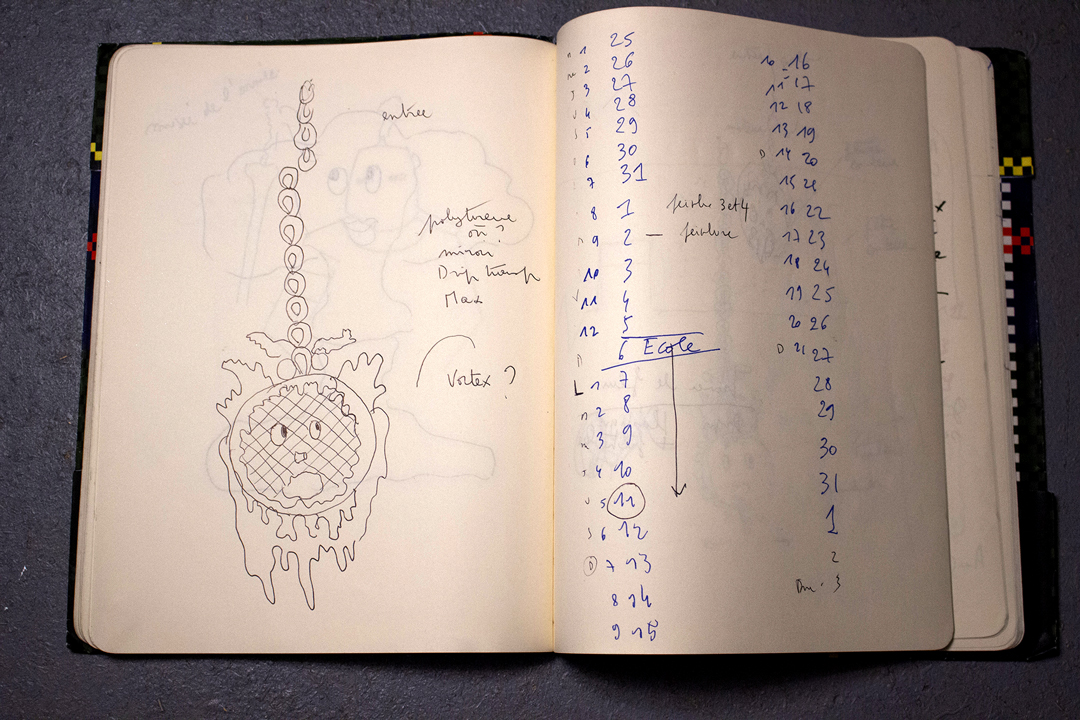 entrée
polystyrene
où ?
miroir
Max
Vortex ?
1 25
2 26
J 3 27
V 4 28
S 5 29
6 30
7 31
8 1 peinture 3 et 4
9 2 — peinture
10 3
V 11 4
12 5
D 6 Ecole
L 1 7
2 8
3 9
J 4 10
V 5 11
S 6 12
D 7 13
8 14
9 15
10 16
11 17
12 18
13 19
D 14 20
15 21
16 22
17 23
18 24
19 25
20 26
D 21 27
28
29
30
31
1
2
3